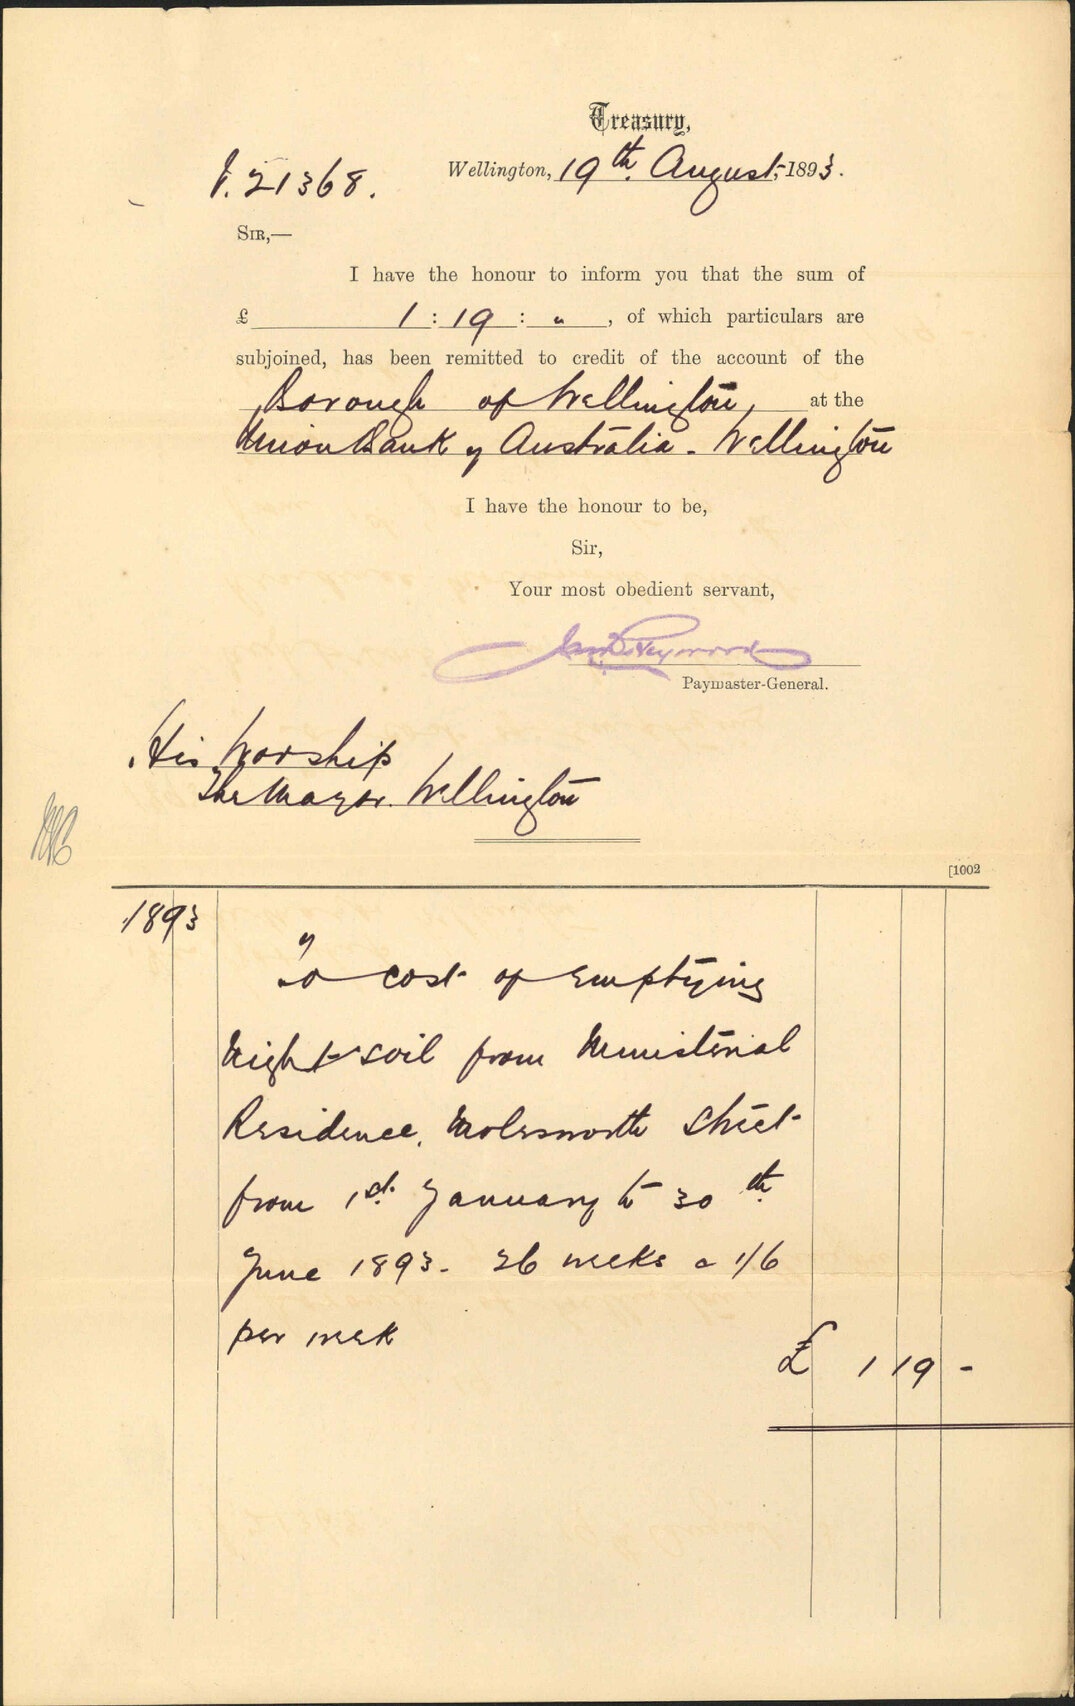 Treasury,
Wellington, 19th. August, 1893.
V. 21368.
SIR,—
I have the honour to inform you that the sum of
£ 1 : 19 : " , of which particulars are
subjoined, has been remitted to credit of the account of the
Borough of Wellington, at the
Union Bank of Australia - Wellington
I have the honour to be,
Sir,
Your most obedient servant,
Paymaster-General.
His Worship
The Mayor. Wellington
[1002
1893
To cost of emptying
Night-soil from Ministerial
Residence, Molesworth Street
from 1st. January to 30th.
June 1893. 26 weeks a 1/6
per week
£ 1 19 -